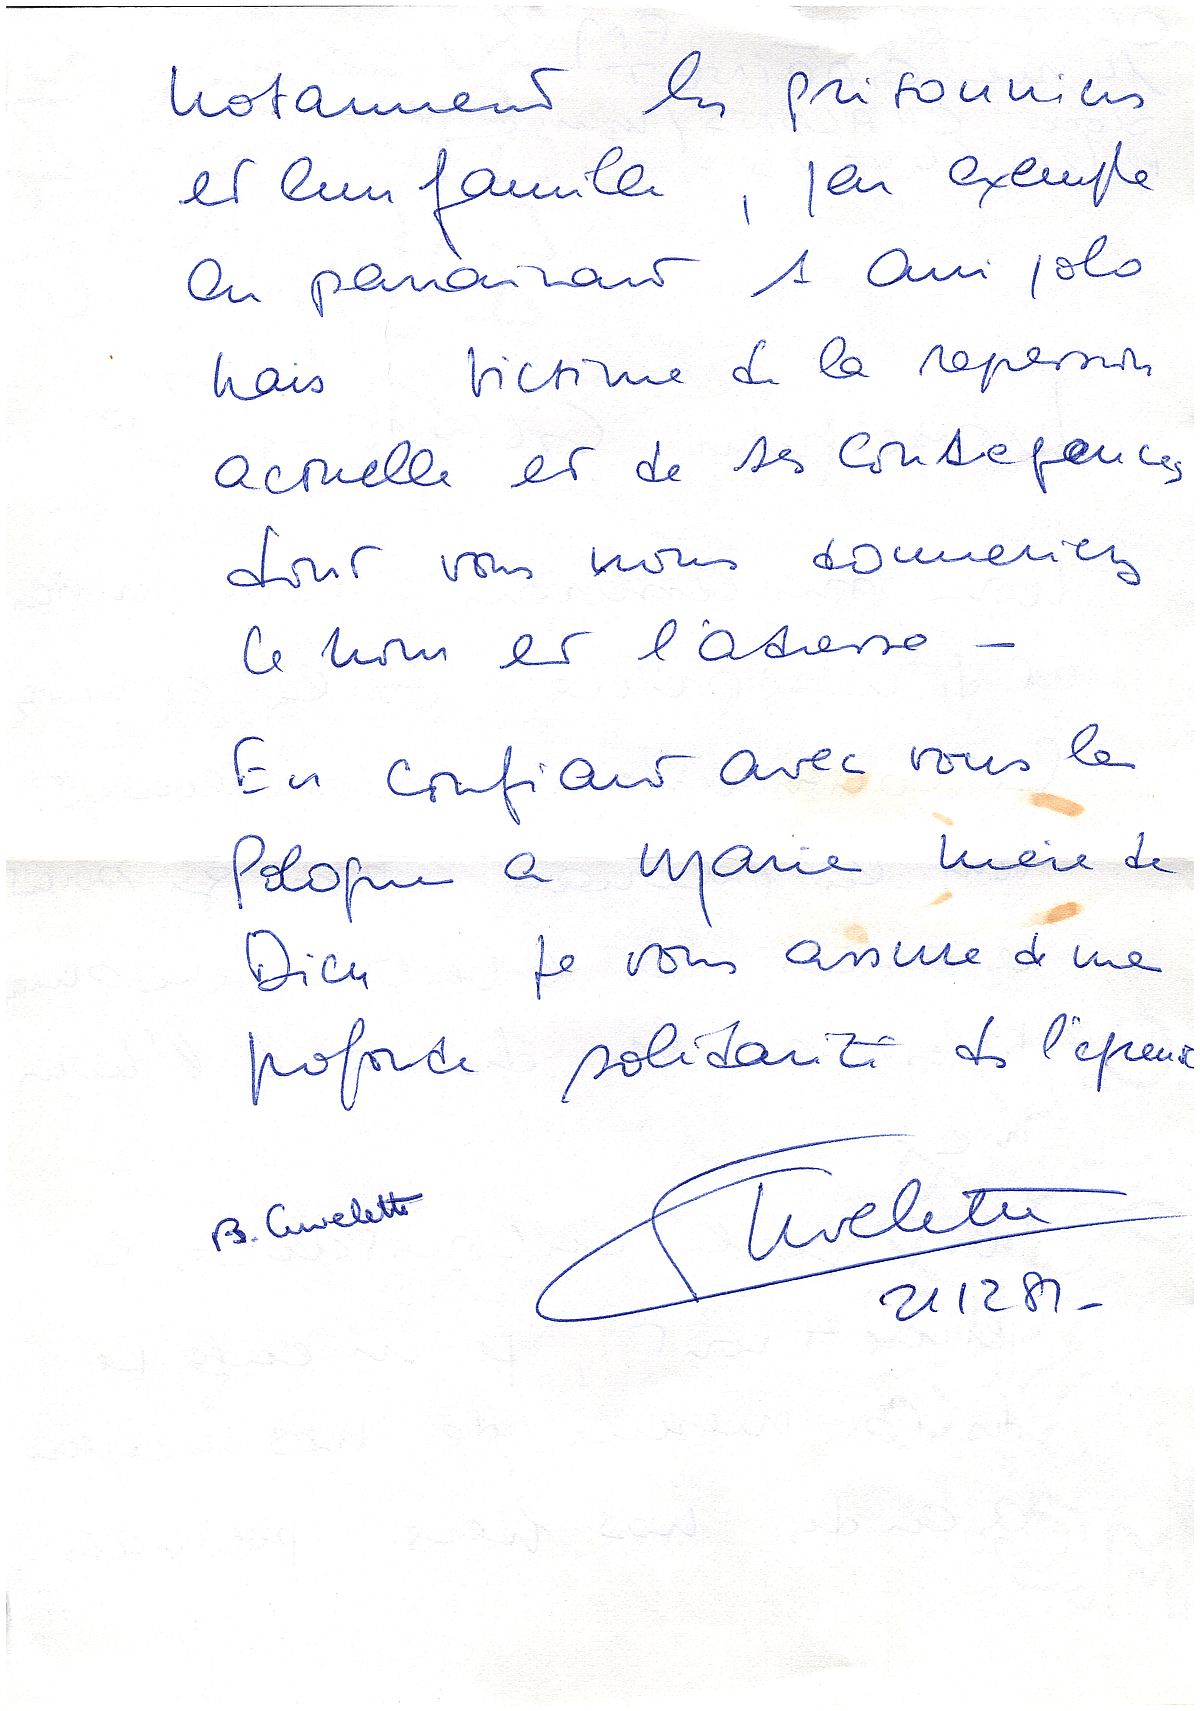 notamment les prisonniers
et leur famille, par exemple
en parrainant 1 ami polo
nais victime de la repression
actuelle et de ses consequences
dont vous nous donneriez
le nom et l'adresse –
En confiant avec vous la
Pologne a Marie mère de
Dieu je vous assure de ma
profonde solidarité ds l'épreuve
B. Cuvelette
Cuvelette
21 12 81 –